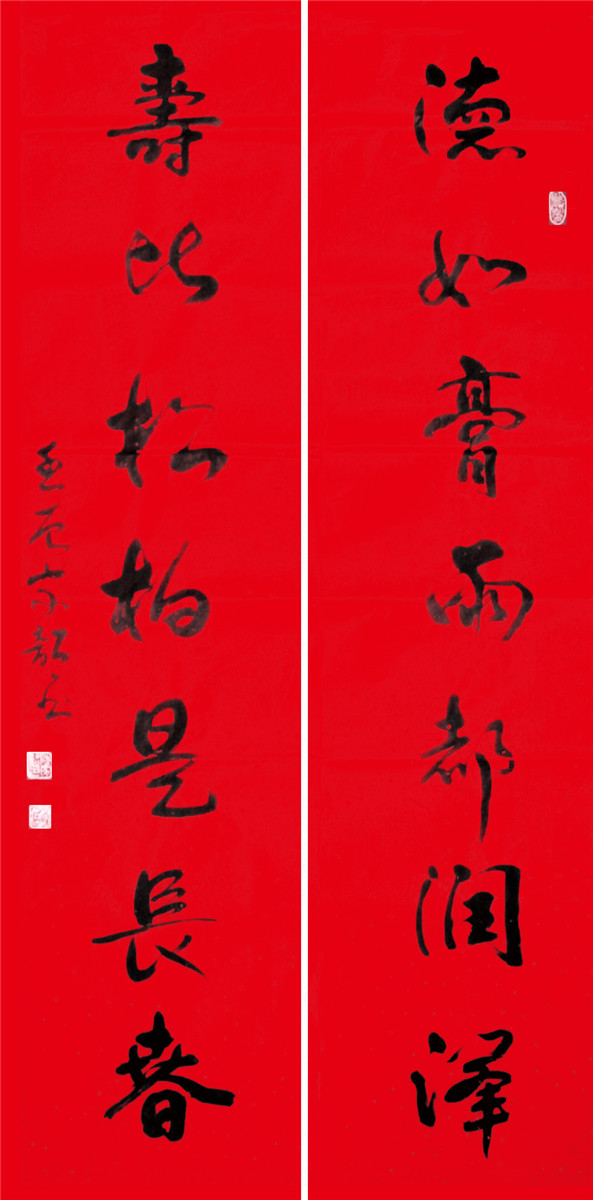 德如膏雨都润泽
壽比松柏是長春